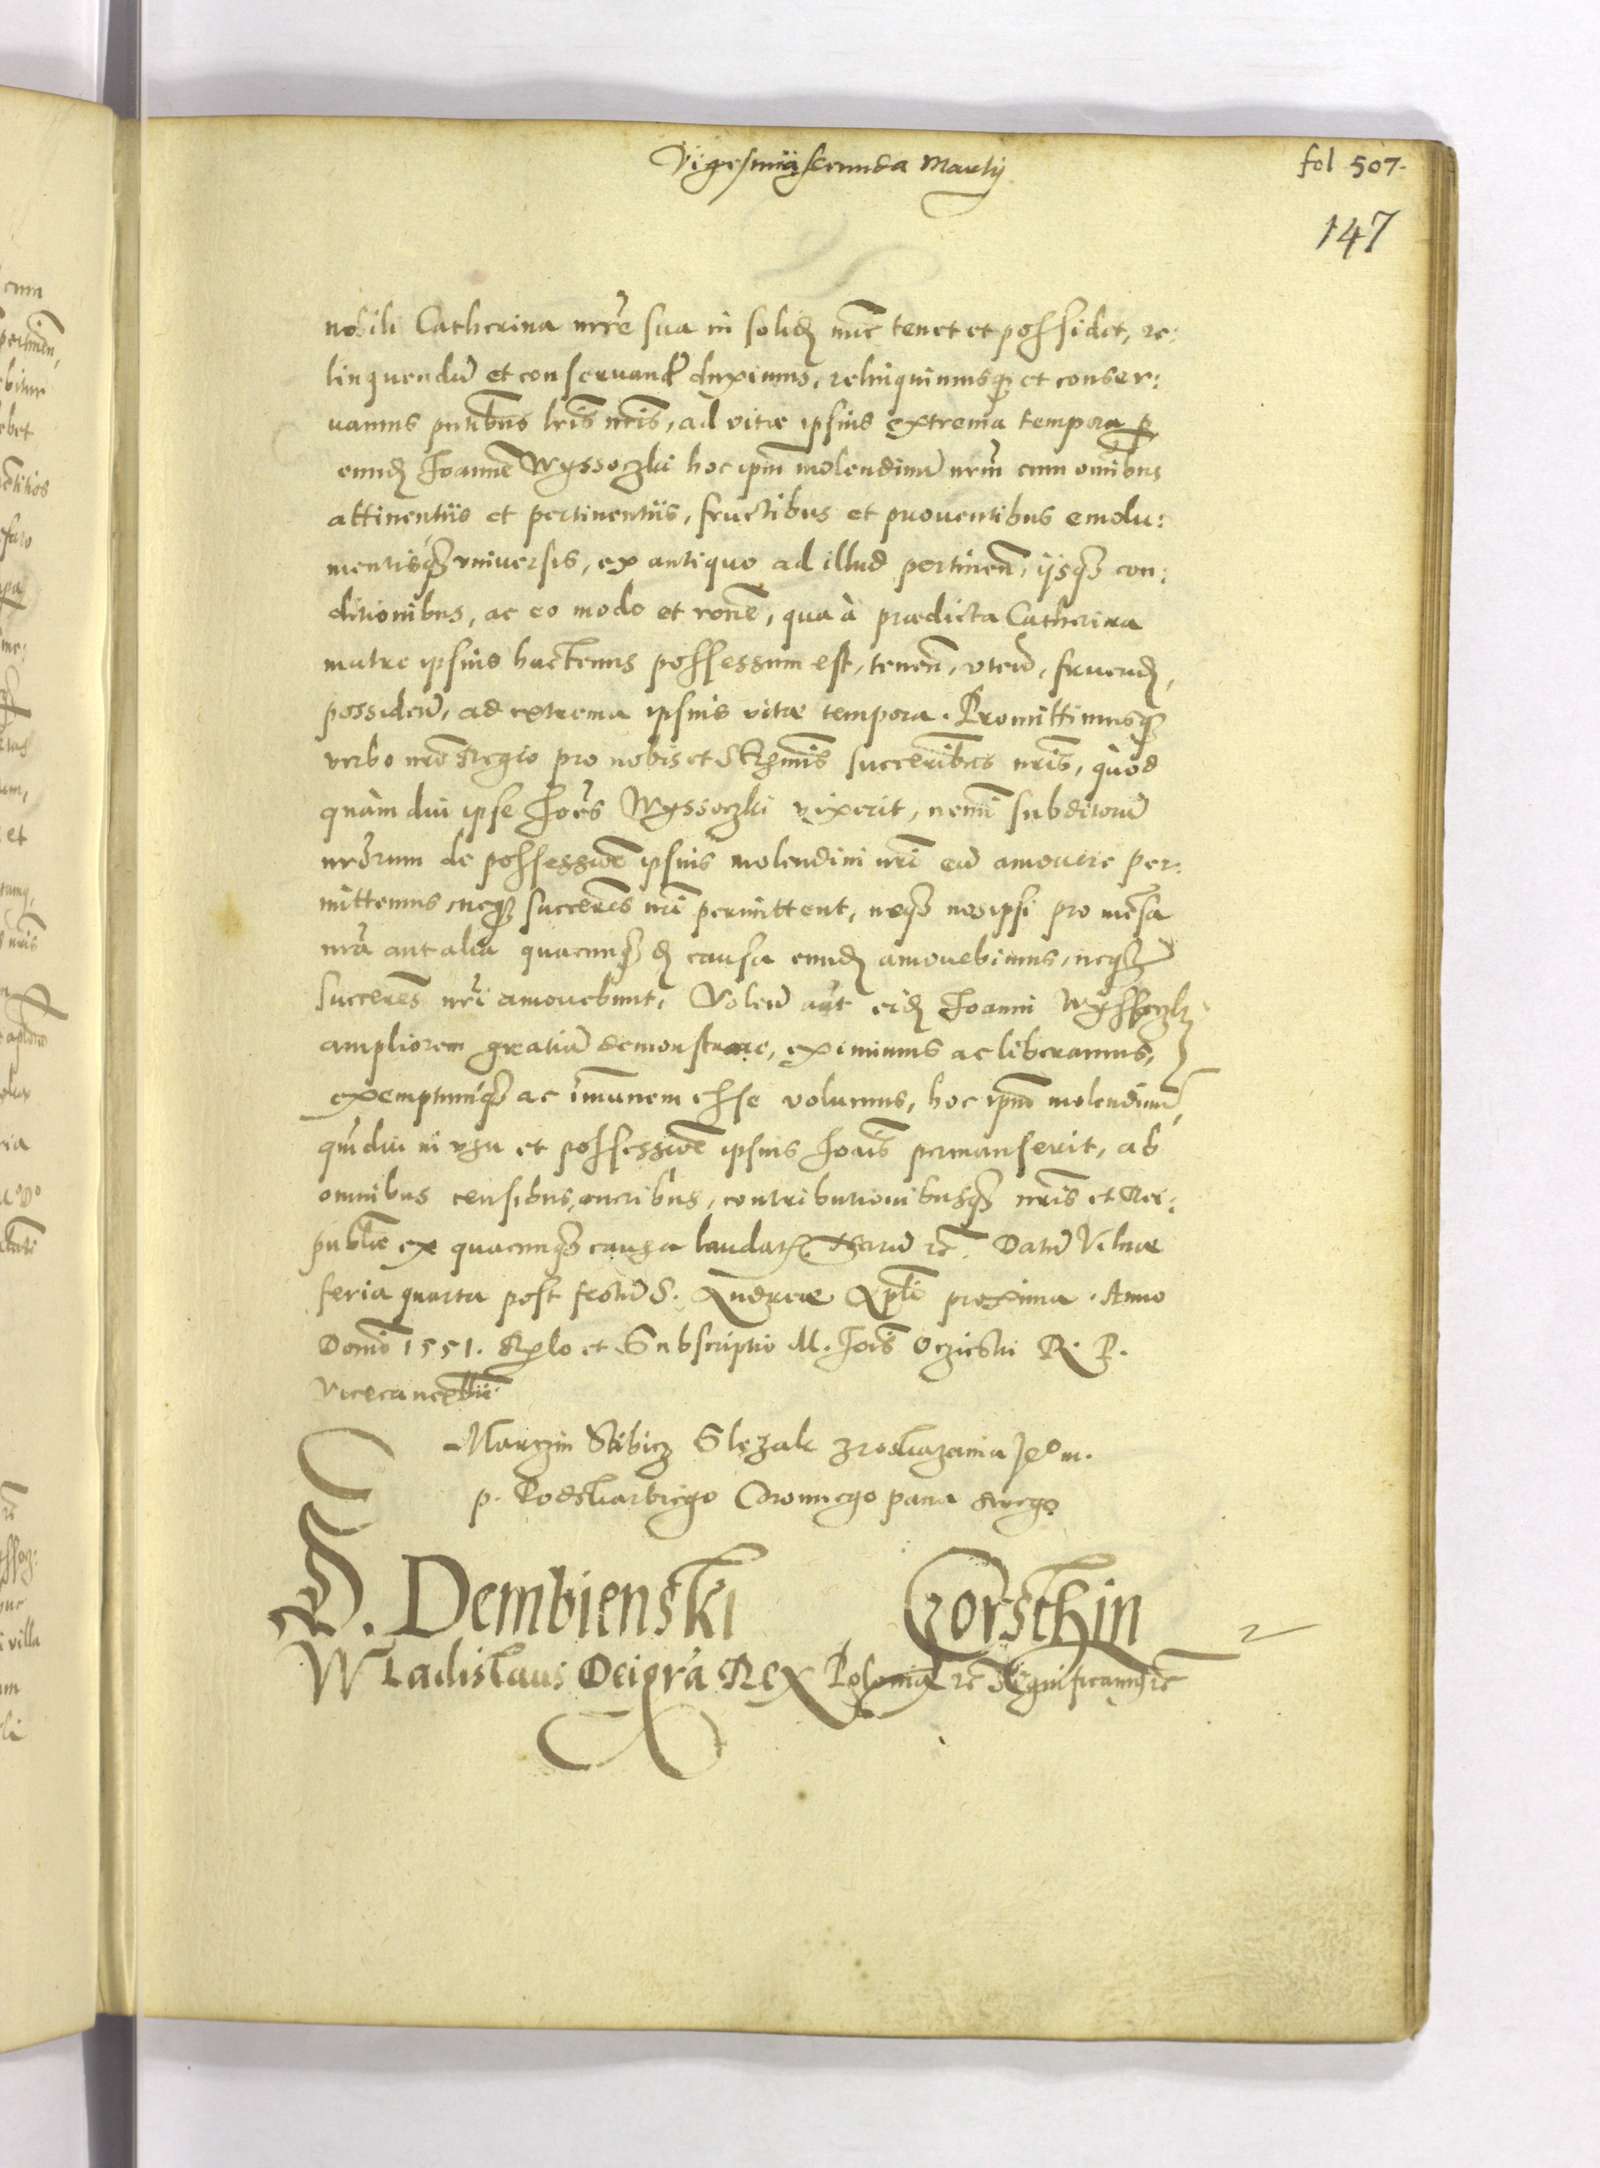 Vigesima secunda Martij
fol 507.
147
nobili Catherina mr̃e sua in solid nũc tenet et possidet, re:
linquendũ et conseruand duximus, relinquimusq et conser:
uamus pñtibus lr̃is nr̃is, ad vitæ ipsius extrema tempora p
eund Joannẽ Wyssoczki hoc ipm̃ molendinũ nr̃m cum omĩbus
attinentiis et pertinentiis, fructibus et prouentibus emolu:
mentisq vniuersis, ex antiquo ad illud pertineñ, ijsq con:
ditionibus, ac eo modo et roñe, qua à prædicta Catherina
matre ipsius hactenus possessum est, teneñ, vteñ, fruend,
possideñ, ad extrema ipsius vitæ tempora. Promittimusq
verbo nr̃o Regio pro nobis et Sermis succeribus nr̃is, quòd
quàm diu ipse Joẽs Wyssoczki vixerit, nemĩ subditorũ
nr̃orum de possessiõe ipsius molendini nr̃i eũ amouere per:
mittemus, neq succeres nr̃i permittent, neq nos ipsi pro mẽsa
nr̃a aut alia quacunq d causa eund amouebimus, neq
succeres nr̃i amouebunt, Voleñ aũt eid Joanni Wyssoczki
ampliorem gratiã demonstrare, eximimus ac liberamus,
exemptumq ac im̃unem esse volumus, hoc ipm̃ molendinũ,
qũdiu in vsu et possessiõe ipsius Joãis permanserit, ab
omnibus censibus, oneribus, contributionibusq nr̃is et Rei:
publicæ ex quacunq causa laudat Harũ rc̃. Datũ Vilnæ
feria quarta post festũ S. Andreæ Apl̃i proxima. Anno
Domĩ 1551. Rel̃o et Subscriptio M. Joĩs Oczieski R. P.
Vicecancellii
Marczin Slezak z roskazania Je° m.
p. Podskarbiego Coronnego pana swego
S. Dembienski Corsthin
Wladislaus Dei gr̃a Rex Poloniæ rc̃ Significamus rc̃